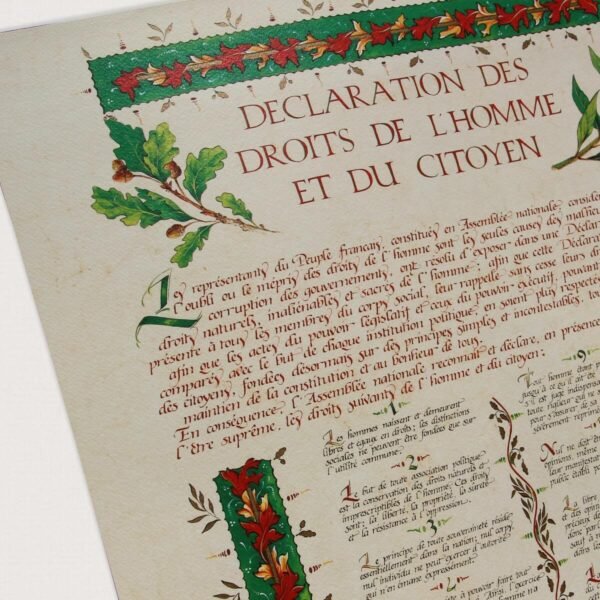 DECLARATION DES
DROITS DE L'HOMME
ET DU CITOYEN
Les représentants du Peuple français, constitués en Assemblée nationale,
l'oubli ou le mépris des droits de l'homme sont les seules causes des
corruption des gouvernements, ont résolu d'exposer dans une
droits naturels, inaliénables et sacrés de l'homme; afin que cette
présente à tous les membres du corps social, leur rappelle sans cesse leurs
afin que les actes du pouvoir législatif et ceux du pouvoir exécutif, pouvant
comparés avec le but de chaque institution politique, en soient plus respectés
des citoyens, fondées désormais sur des principes simples et incontestables,
maintien de la constitution et au bonheur de tous.
En conséquence, l'Assemblée nationale reconnaît et déclare, en présence
l'être suprême, les droits suivants de l'homme et du citoyen:
1
Les hommes naissent et demeurent
libres et égaux en droits; les distinctions
sociales ne peuvent être fondées que sur
l'utilité commune.
2
Le but de toute association politique
est la conservation des droits naturels et
imprescriptibles de l'homme. Ces droits
sont: la liberté, la propriété, la sûreté
et la résistance à l'oppression.
3
Le principe de toute souveraineté réside
essentiellement dans la nation; nul corps,
nul individu ne peut exercer d'autorité
qui n'en émane expressément.
à pouvoir faire tout
9
Tout homme étant
jusqu'à ce qu'il ait été
s'il est jugé
toute rigueur qui ne
pour s'assurer de sa
sévèrement
Nul ne doit être
opinions, même
leur
public établi
La libre
et des opinions